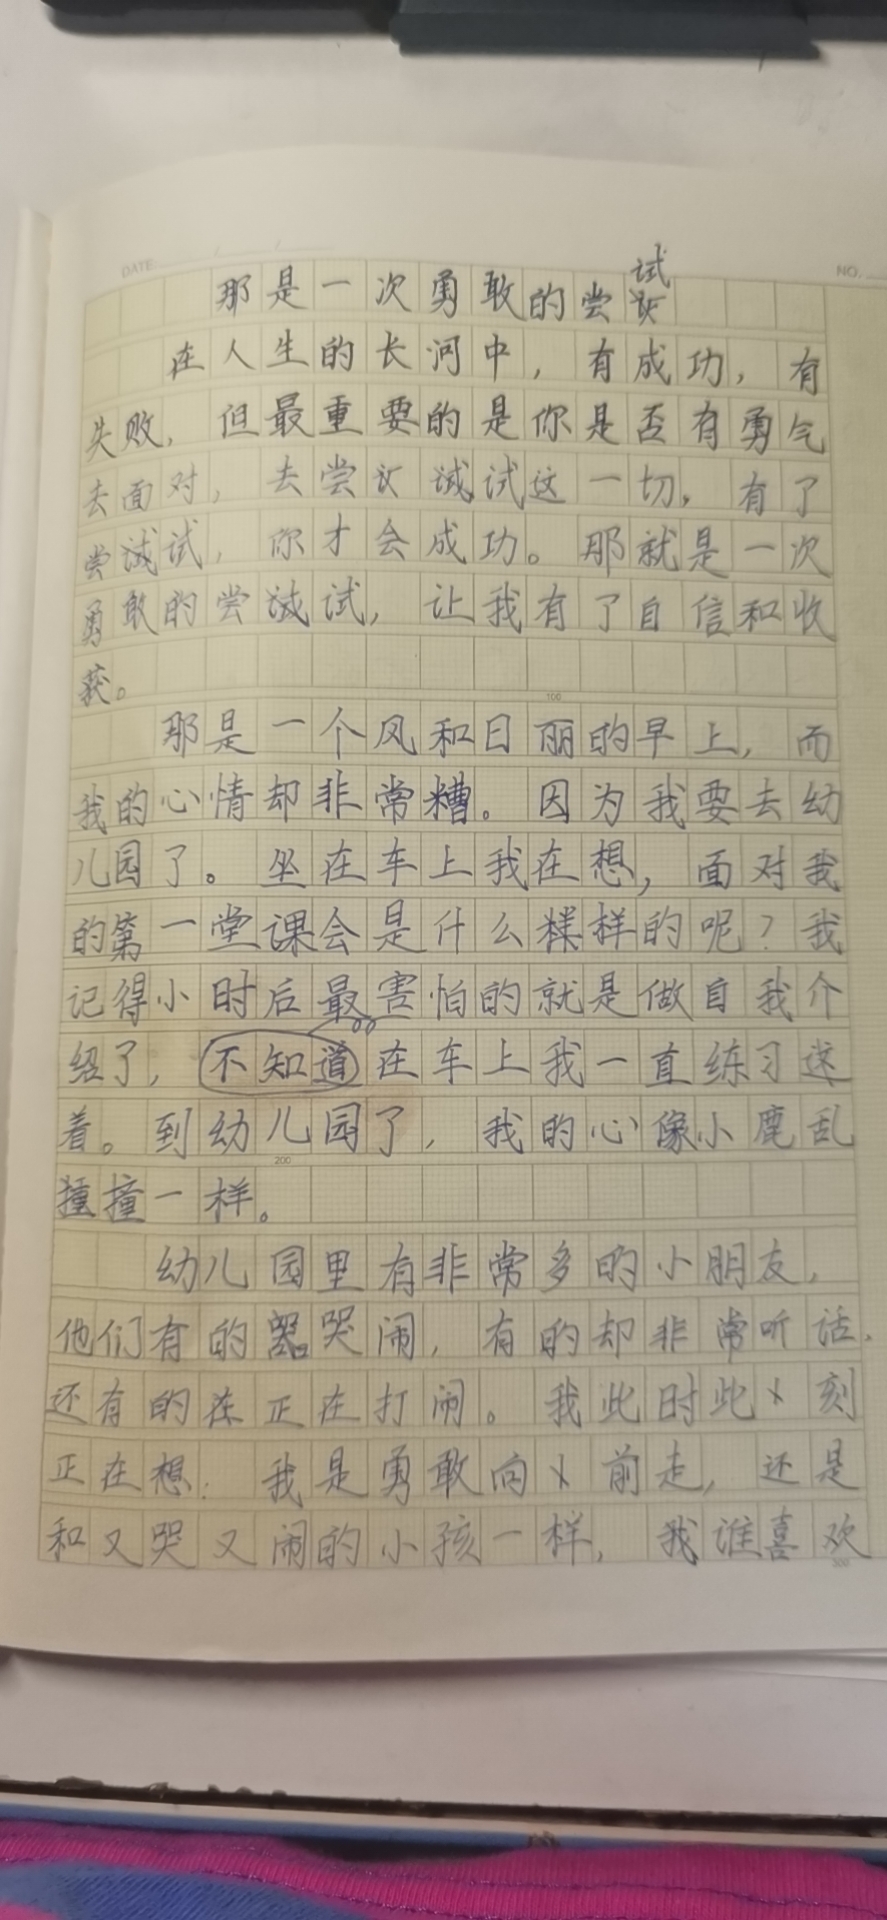 DATE / /
NO.
那是一次勇敢的尝试
在人生的长河中，有成功，有
失败，但最重要的是你是否有勇气
去面对，去尝试这一切，有了
尝试，你才会成功。那就是一次
勇敢的尝试，让我有了自信和收
获。
100
那是一个风和日丽的早上，而
我的心情却非常糟。因为我要去幼
儿园了。坐在车上我在想，面对我
的第一堂课会是什么样的呢？我
记得小时后最害怕的就是做自我介
绍了，不知道在车上我一直练习送
着。到幼儿园了，我的心像小鹿乱
200
撞一样。
幼儿园里有非常多的小朋友，
他们有的哭闹，有的却非常听话，
还有的正在打闹。我此时此刻
正在想：我是勇敢向前走，还是
和又哭又闹的小孩一样，我谁喜欢
300